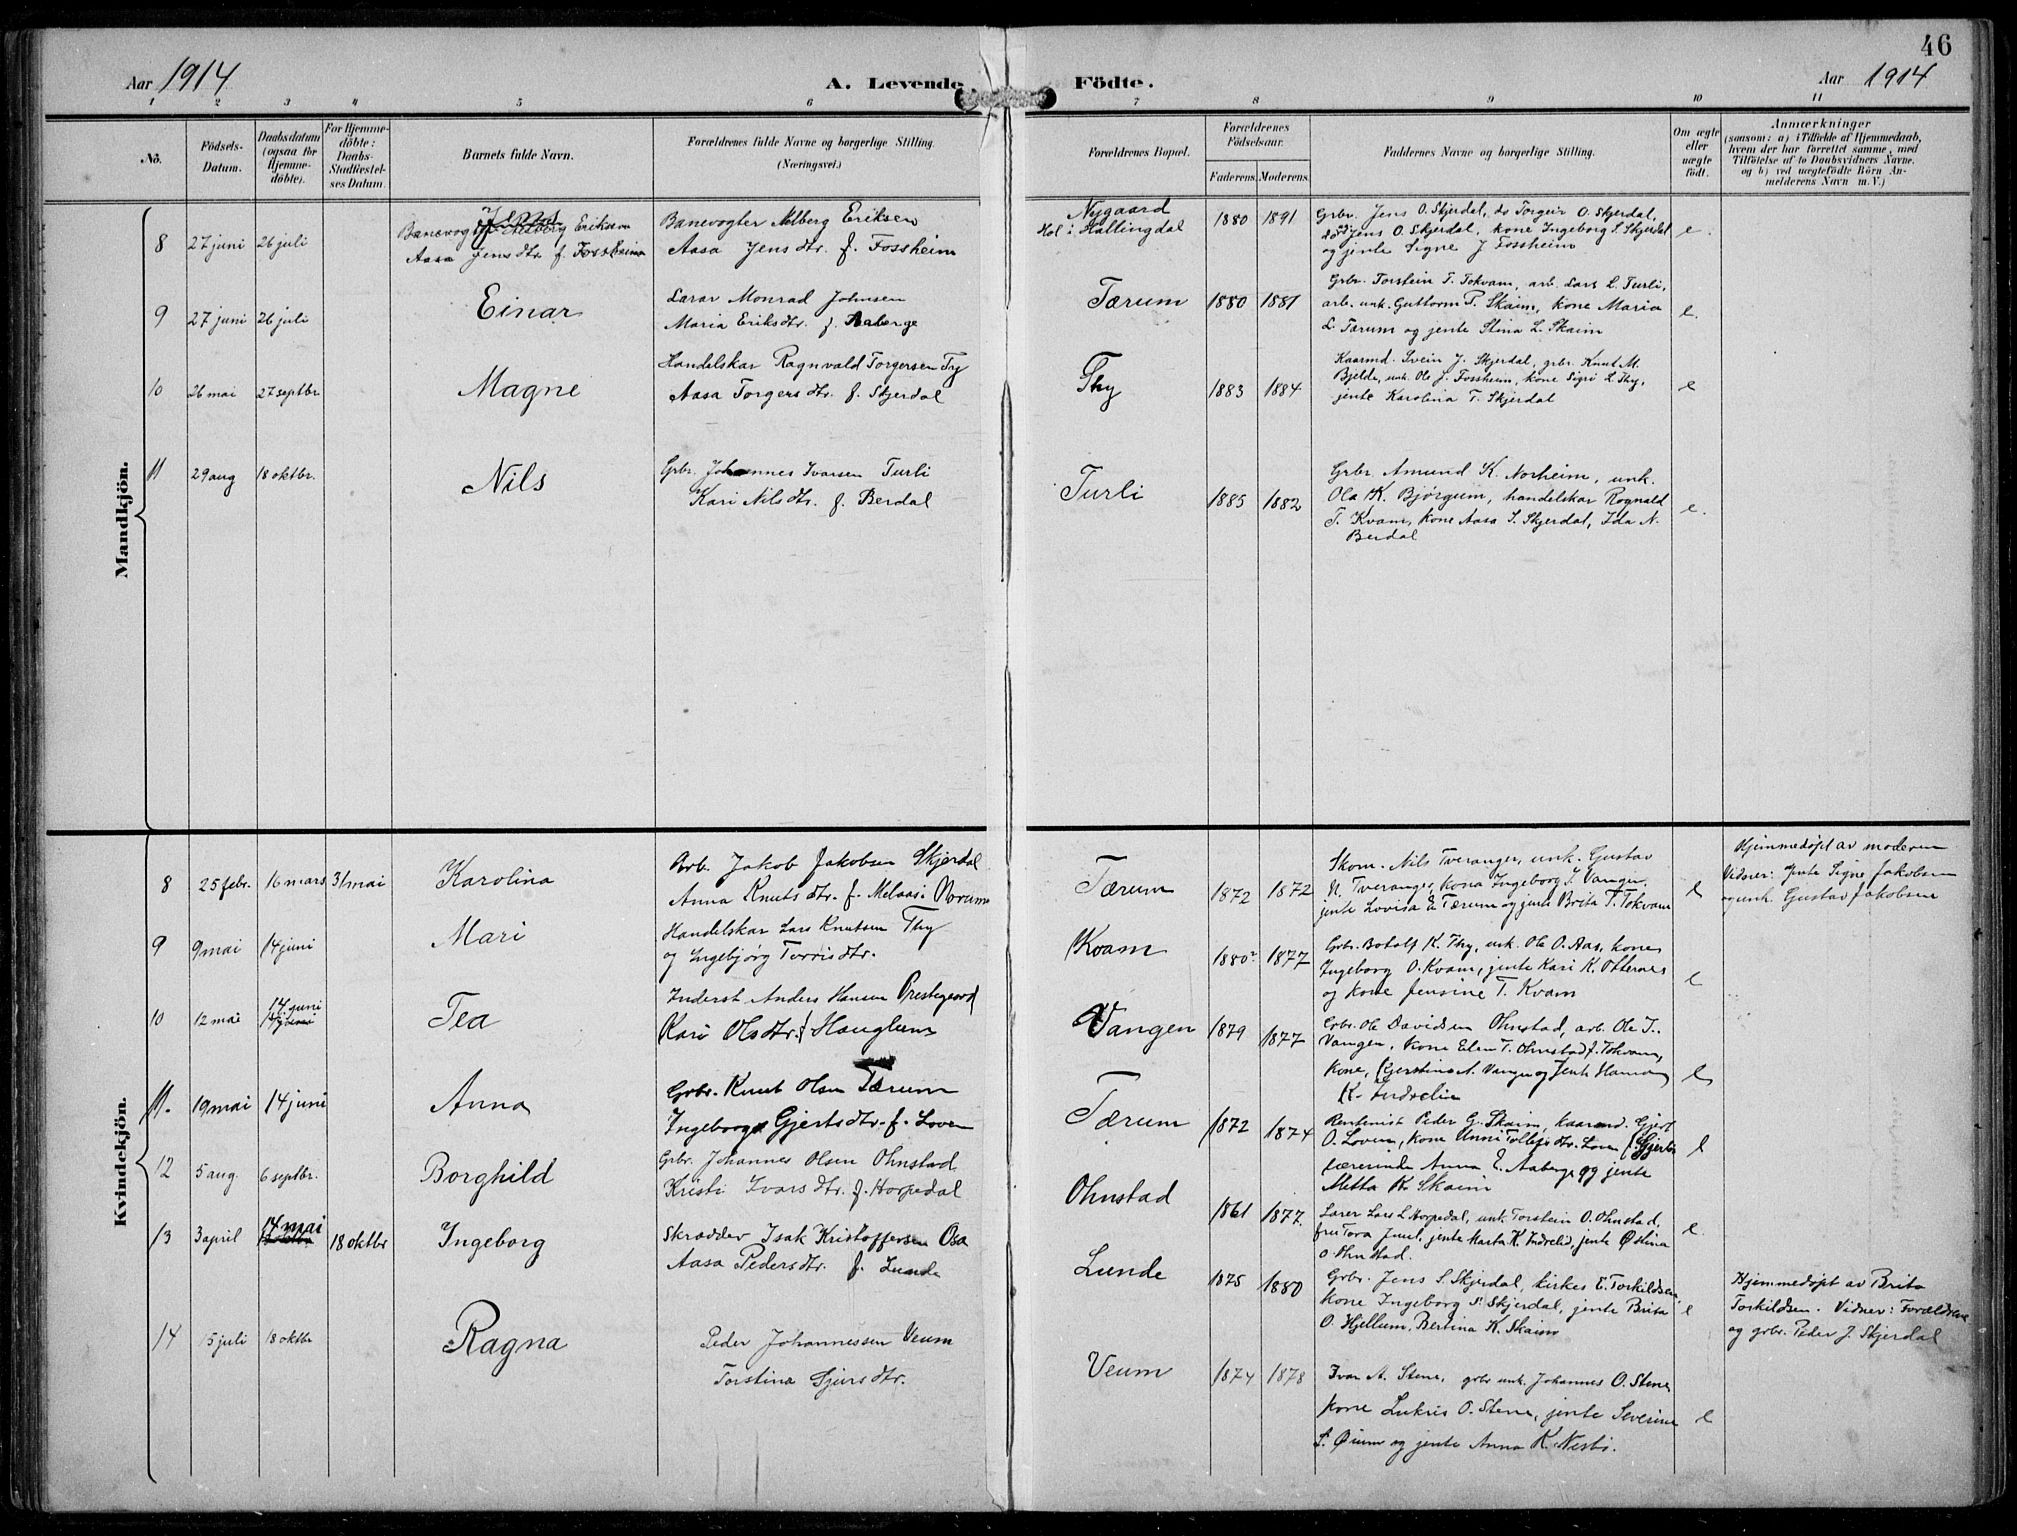 46
Aar 1914
A. Levende Födte.
Aar 1914
1 2 3 4 5 6 7 8 9 10 11
No.
Födsels-
Datum.
Daabsdatum
(ogsaa for
Hjemme-
döbte).
For Hjemme-
döbte:
Daabs-
Stadfæstel-
ses Datum.
Barnets fulde Navn.
Forældrenes fulde Navne og borgerlige Stilling.
(Næringsvei.)
Forældrenes Bopæl.
Forældrenes
Födselsaar.
Faderens. Moderens.
Faddernes Navne og borgerlige Stilling.
Om ægte
eller
uægte
födt.
Anmærkninger
(saasom: a) i Tilfælde af Hjemmedaab,
hvem der har forrettet samme, med
Tilföielse af to Daabsvidners Navne.
og b) ved uægtefödte Börn An-
melderens Navn m. V.)
Mandkjön.
8 27 juni 26 juli
Jens
Banevogter Eriksen
Aasa Jensdtr. f. Fossheim
Banevogter Eriksen
Aasa Jensdtr. f. Fossheim
Nygaard
Hol i Hallingdal
1880 1891
Grbr. Jens O. Skjerdal, do Torgeir O. Skjerdal,
Jens O. Skjerdal, kone Ingeborg S. Skjerdal
og jente Signe J Fossheim
e.
9 27 juni 26 juli
Einar
Lærar Monrad Johnsen
Maria Eriksdtr. f. Aaberge
Tærum
1880 1881
Grbr. Torstein T. Tokvam, arb. Lars L. Turli,
arb. unk. Guttorm P. Skaim, kone Maria
L. Tærum og jente Stina L. Skaim
e.
10 26 mai 27 septbr.
Magne
Handelskar Ragnvald Torgersen Ty
Aasa Torgersdtr. f. Skjerdal
Thy
1883 1884
Kaarmd. Svein J. Skjerdal, grbr. Knut M.
Bjelde, unk. Ole J. Fossheim, kone Sigri L Thy,
jente Karolina T. Skjerdal
e
11 29 aug 18 oktbr.
Nils
Grbr. Johannes Ivarsen Turli
Kari Nilsdtr. f. Berdal
Turli
1885 1882
Grbr. Amund K. Norheim, unk.
Ola K. Bjørgum, handelskar Rognald
T. Kvam, kone Aasa S. Skjerdal, Ida N.
Berdal
e.
Kvindekjön.
8 25 febr. 16 mars 31 mai
Karolina
Arb. Jakob Jakobsen Skjerdal
Anna Knutsdtr. f. Melaas i Norum
Tærum
1872 1872
Skom. Nils Tveranger, unk. Gustav
N. Tveranger, kona Ingeborg J. Vangen,
jente Lovisa E Tærum og jente Brita T. Tokvam
e
Hjemmedøpt av moderen
Vidner: Jente Signe Jakobsen
og unk. Gustav Jakobsen
9 9 mai 14 juni
Mari
Handelskar Lars Knutsen Thy
og Ingebjørg Torrisdtr.
Kvam
1880 1877
Grbr. Botolf K. Thy, unk. Ole O. Aas, kone
Ingeborg O. Kvam, jente Kari K. Otternes
og kone Jensine T. Kvam
e
10 12 mai 14 juni
Tea
Inderst Anders Hansen Prestegaard
Kari Olsdtr. f. Hauglum
Vangen
1879 1877
Grbr. Ole Davidsen Ohnstad, arb. Ole J.
Vangen, kone Elen T. Ohnstad f. Tokvam,
kone, Gjertina A. Vangen og Jente Hanna
K. Indrelid
e
11. 19 mai 14 juni
Anna
Grbr. Knut Olsen Tærum
Ingeborg Gjertsdtr. f. Loven
Tærum
1872 1874
Rentenist Peder G. Skaim, kaarmd. Gjert
O. Loven, kone Anni Tollefsdtr. Loven
lærerinde Anna E. Aaberge og jente
Metta K. Skaim
e
12 5 aug. 6 septbr.
Borghild
Grbr. Johannes Olsen Ohnstad
Kristi Ivarsdtr. f. Horpedal
Ohnstad
1861 1877.
Lærer Lars L Horpedal, unk. Torstein O. Ohnstad,
fru Tora Juul, jente Marta K. Indrelid, jente Østina
O. Ohnstad.
e.
13 3 april 14 mai 18 oktbr
Ingeborg
Skrædder Isak Kristoffersen Osa
Aasa Pedersdtr. f. Lunde
Lunde
1875 1880
Grbr. Jens S. Skjerdal, kirkes. E. Torkildsen,
kone Ingeborg S. Skjerdal, jente Brita
O. Hjellum, Bertina K. Skaim
e
Hjemmedøpt av Brita
Torkildsen. Vidner: Forældrene
og grbr. Peder J. Skjerdal
14 5 juli 18 oktbr
Ragna
Peder Johannessen Veum
Torstina Sjursdtr.
Veum
1874 1878
Ivar A. Stene, grbr unk. Johannes O. Stene,
kone Lukris O. Stene, jente Severine
S. Øium og jente Anna K. Nesbø.
e